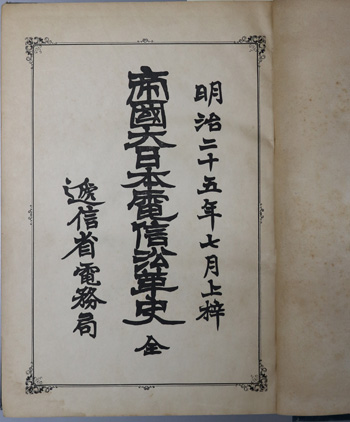 明治二十五年七月上梓
帝國大日本電信沿革史 全
遞信省電務局